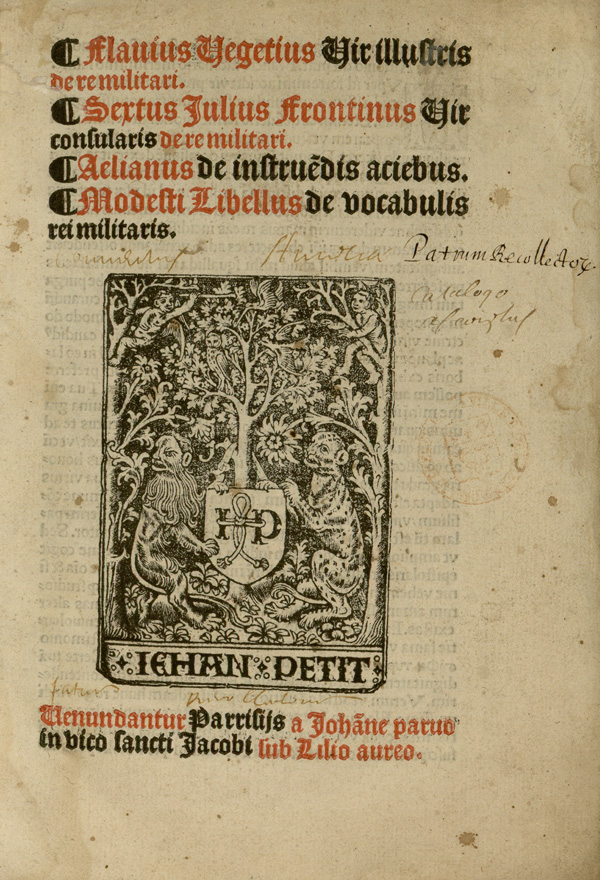 ¶ Flauius Uegetius Uir illustris
de re militari.
¶ Sextus Julius Frontinus Uir
consularis de re militari.
¶ Aelianus de instruẽdis aciebus.
¶ Modesti Libellus de vocabulis
rei militaris.
Patrum Recollectoꝝ
Catalogo
HP
IEHAN PETIT
Uenundantur Parrisijs a Johãne paruo
in vico sancti Jacobi sub Lilio aureo.